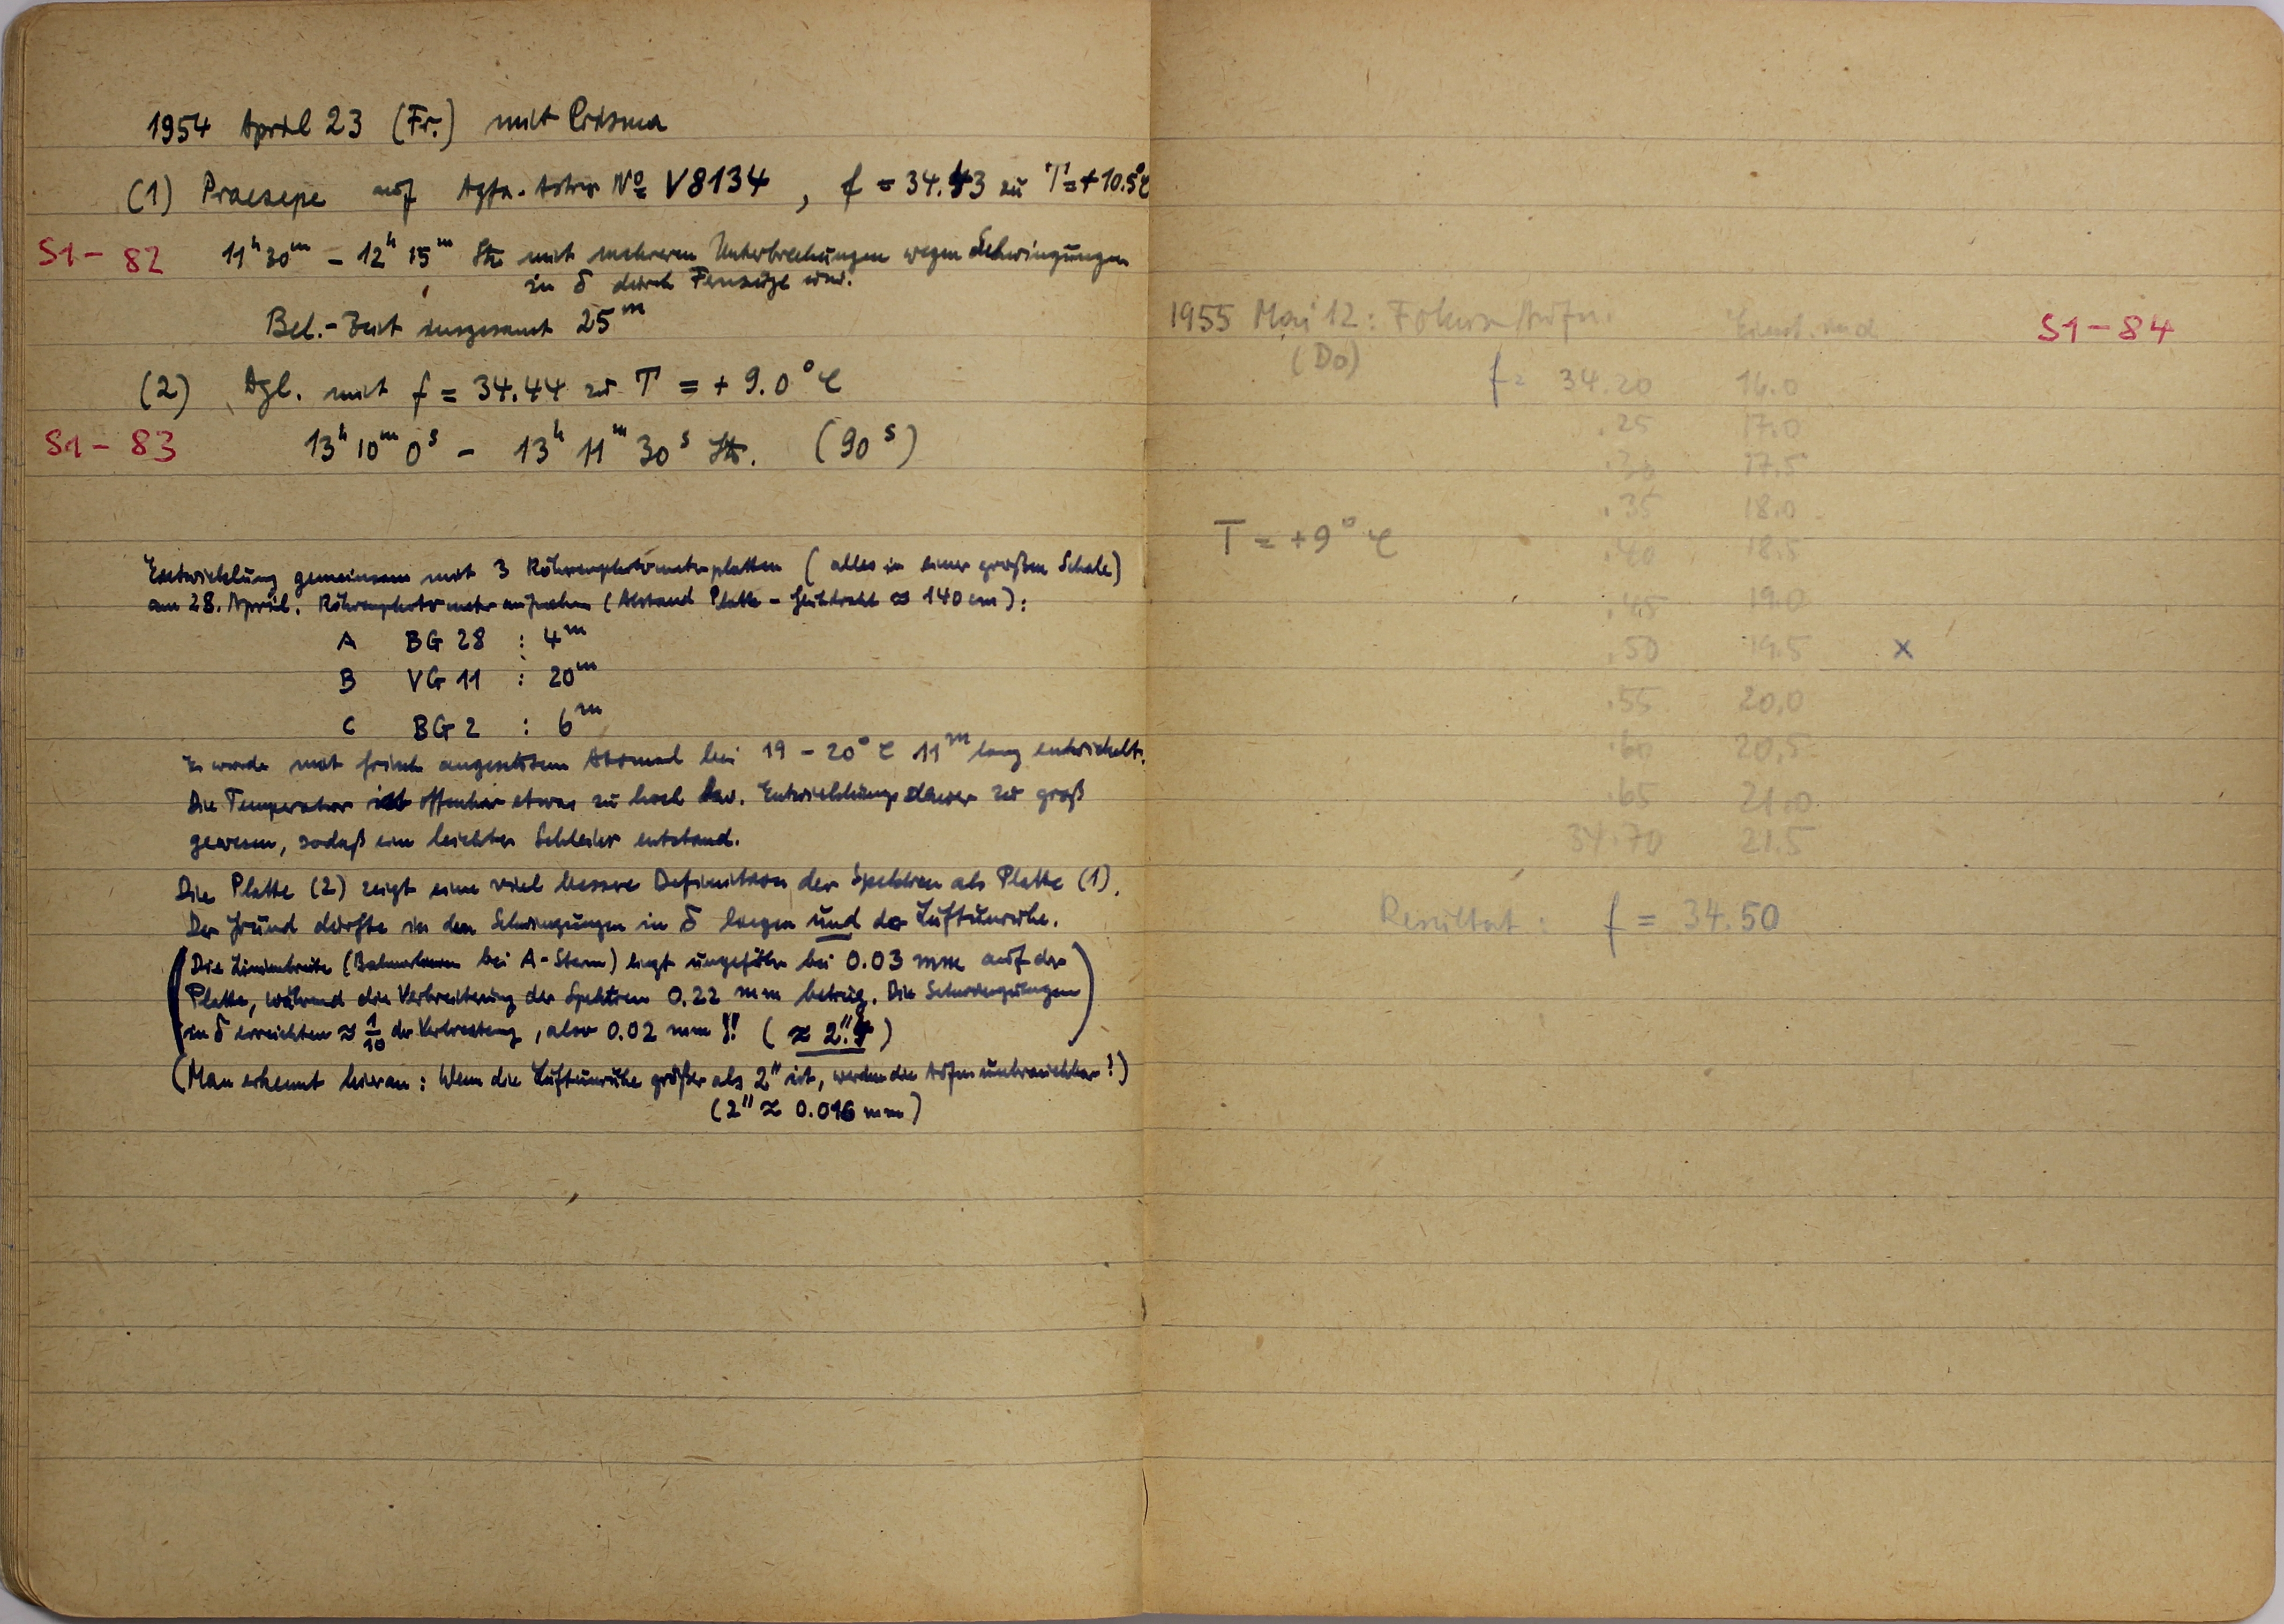 1954 April 23 (Fr.) mit Prisma
(1) Praesepe auf Agfa-Astro № V8134, f = 34.43 zu T = +10.5°C
S1-82 11ʰ30ᵐ – 12ʰ15ᵐ Stz mit mehreren Unterbrechungen wegen Schwingungen
in δ durch Fernzüge usw.
Bel.-Zeit insgesamt 25ᵐ
(2) Dgl. mit f = 34.44 zu T = +9.0°C
S1-83 13ʰ10ᵐ0ˢ – 13ʰ11ᵐ30ˢ Stz. (90ˢ)
Entwicklung gemeinsam mit 3 Röhrenphotometerplatten (alles in einer großen Schale)
am 28. April. Röhrenphotometeraufnahmen (Abstand Platte – Glühdraht ≈ 140 cm):
A BG 28 : 4ᵐ
B VG 11 : 20ᵐ
C BG 2 : 6ᵐ
Es wurde mit frisch angesetztem Atomal bei 19 – 20°C 11ᵐ lang entwickelt.
Die Temperatur ist offenbar etwas zu hoch bzw. Entwicklungsdauer zu groß
gewesen, sodaß ein leichter Schleier entstand.
Die Platte (2) zeigt eine viel bessere Definition der Spektren als Platte (1).
Der Grund dürfte in den Schwingungen in δ liegen und der Luftunruhe.
(Die Linienbreite (Balmerlinien bei A-Stern) liegt ungefähr bei 0.03 mm auf der
Platte, während die Verbreiterung der Spektren 0.22 mm betrug. Die Schwingungen
in δ erreichten ≈ 1/10 der Verbreiterung, also 0.02 mm !! (≈ 2".4)
(Man erkennt hieran: Wenn die Luftunruhe größer als 2" ist, werden die Aufn. unbrauchbar!)
(2" ≈ 0.016 mm)
1955 Mai 12: Fokus-Aufn. S1-84
(Do)
f = 34.20 16.0
.25 17.0
.30 17.5
.35 18.0
T = +9°C
.40 18.5
.45 19.0
.50 19.5 x
.55 20.0
.60 20.5
.65 21.0
34.70 21.5
Resultat: f = 34.50